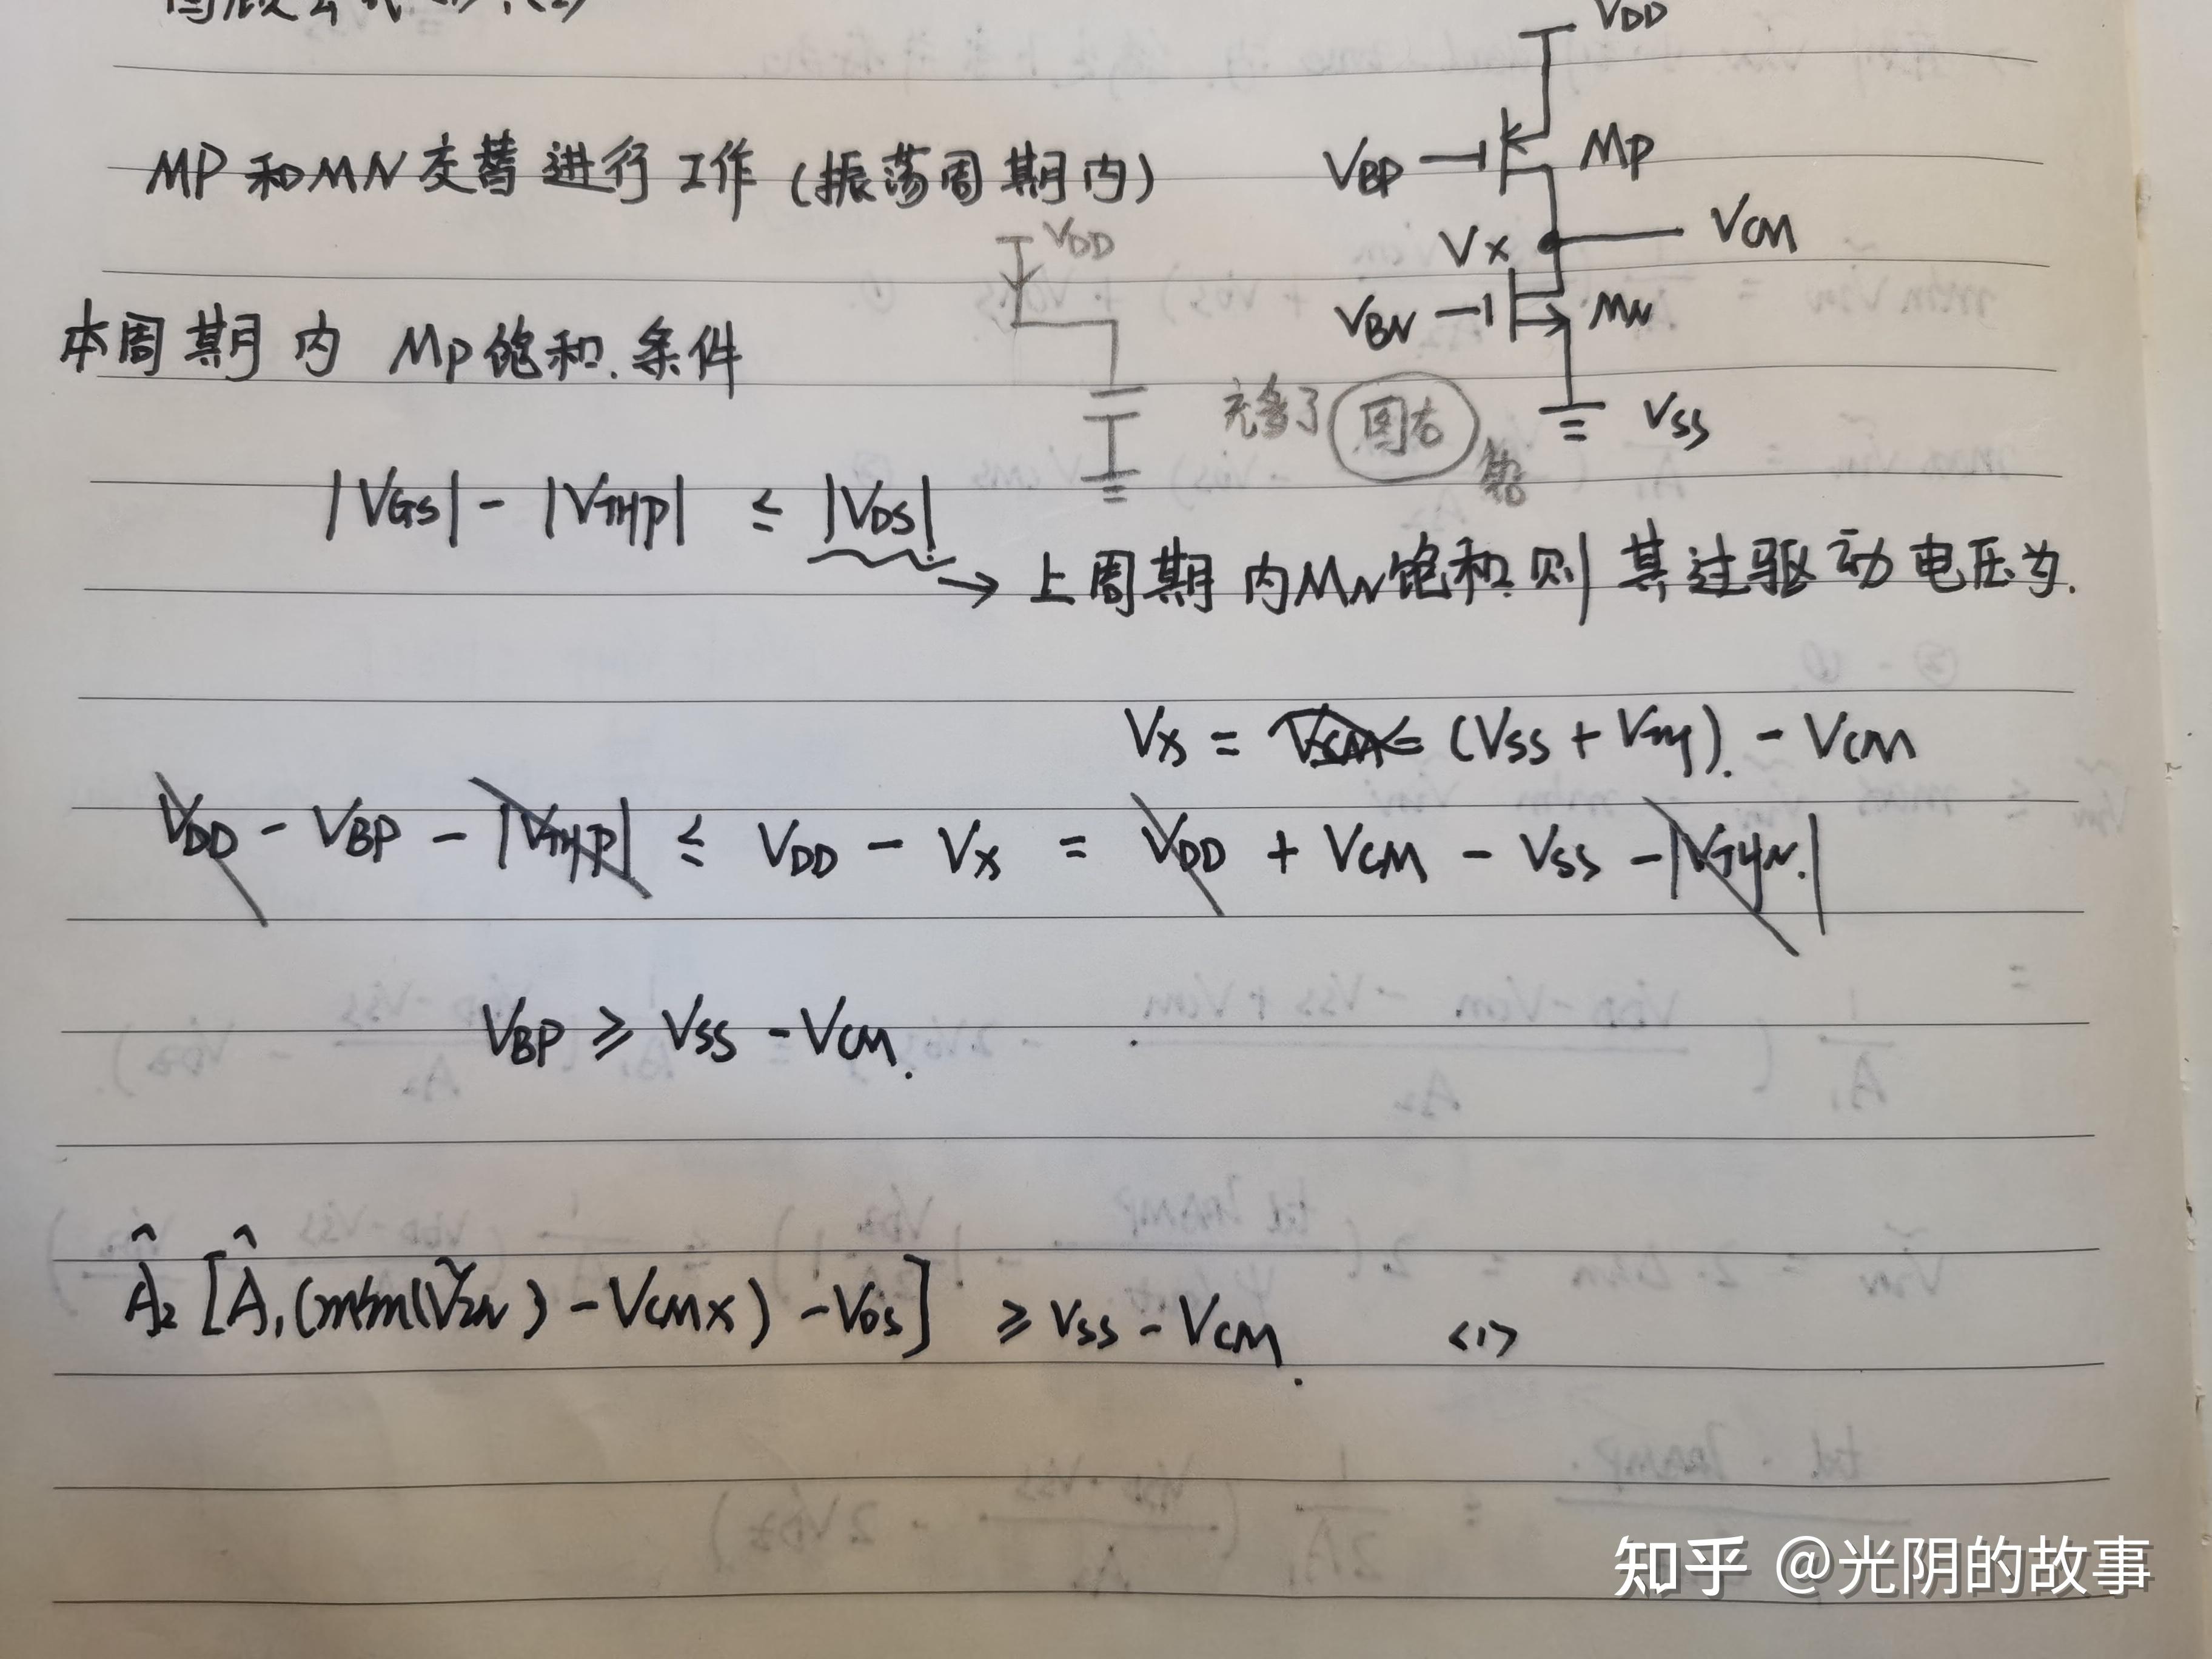 VDD
MP和MN交替进行工作(振荡周期内)
VBP
MP
VX
VCM
VBN
MN
VSS
VDD
图右
本周期内 MP饱和.条件
|VGS| - |VTHP| ≤ |VDS|
→ 上周期内MN饱和则其过驱动电压为.
VX = (VSS + VTH) - VCM
VDD - VBP - |VTHP| ≤ VDD - VX = VDD + VCM - VSS - |VTHN|
VBP ≥ VSS - VCM.
Â2 [Â1(min(ṼIN) - VCMX) - VOS] ≥ VSS - VCM. <1>
知乎 @光阴的故事